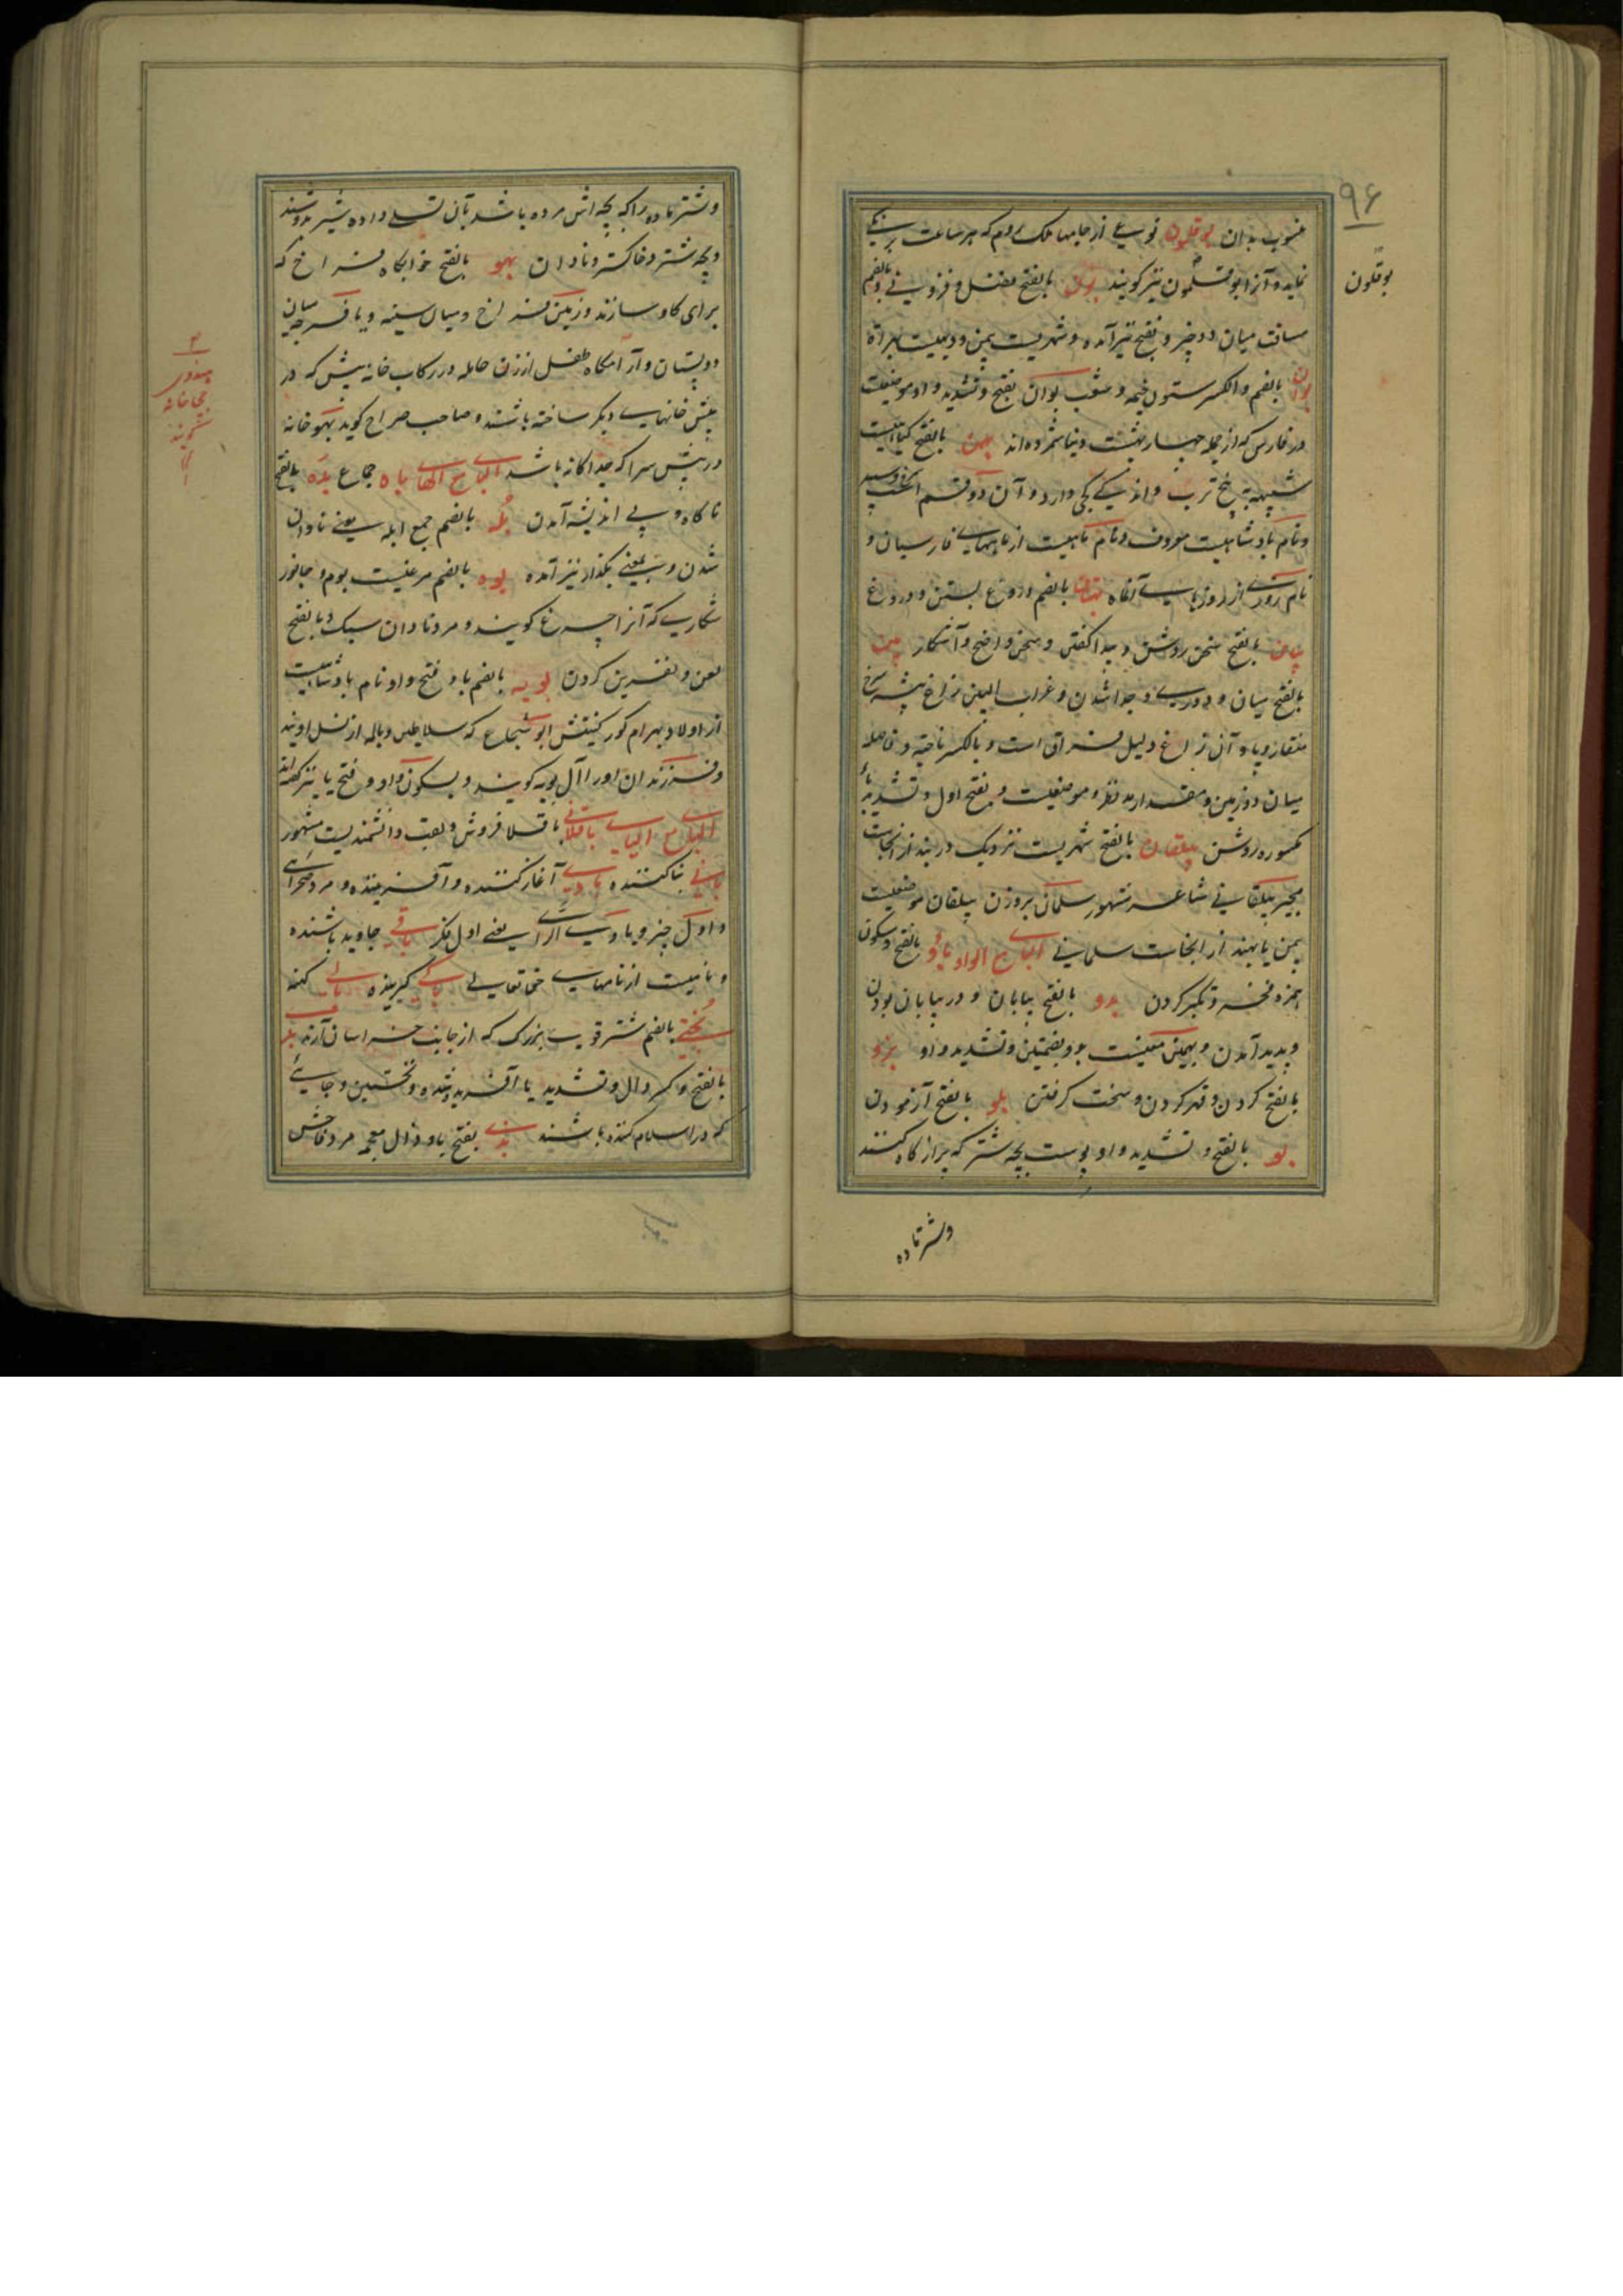 ۹۶
بوقلمون
منسوب بدان بوقلمون نوعی از جامهای ملک روم که هر ساعت برنگی
نماید و آنرا ابوقلمون نیز گویند بون بالفتح فضل و فزونی و بالضم
مسافت میان دو چیز و بفتح نیز آمده و شهریست بیمن و دیهیست بهراة
بوان بالضم والکسر ستون خیمه و شعب بوان بفتح و تشدید واو موضعیست
در فارس که از جمله چهار بهشت دنیا شمرده‌اند بهمن بالفتح گیاهیست
شبیه به بیخ ترب و اندکی کجی دارد و آن دو قسم است سرخ و سپید
و نام پادشاهیست معروف و نام ماهیست از ماههای فارسیان و
نام روزی از روزهای آنماه بهتان بالضم دروغ بستن و دروغ
بیان بالفتح سخن روشن و پیدا گفتن و سخن واضح و آشکار بین
بالفتح میان و دوری و جدا شدن و غراب البین زاغ پیسه سرخ
منقار و پا و آن زاغ دلیل فراق است و بالکسر ناحیه و فاصله
میان دو زمین و مقدار مد نظر و موضعیست و بفتح اول و تشدید یای
مکسوره روشن بیلقان بالفتح شهریست نزدیک دربند از آنجاست
مجیر بیلقانی شاعر مشهور سلمان بروزن بیلقان موضعیست
بیمن یا بهند از انجاست سلمانی الباء مع الواو باو بالفتح و سکون
همزه فخر و تکبر کردن بدو بالفتح بیابان و در بیابان بودن
و پدید آمدن و بهمین معنیست بدو بضمتین و تشدید واو بزو
بالفتح کردن و قهر کردن و سخت گرفتن بلو بالفتح آزمودن
بو بالفتح و تشدید واو پوست بچه شتر که پر از کاه کنند
وشتر ماده
وشتر ماده را که بچه اش مرده باشد بآن تسلی داده شیر بدوشند
و بچه شتر و خاکستر و نادان بهو بالفتح خوابگاه فراخ که
برای گاو سازند و زمین فراخ و میان سینه و یا فرجه میان
دو پستان و آرامگاه طفل از زن حامله و در کتاب خانه پیش که در
پیش خانهای دیگر ساخته باشند و صاحب صراح گوید بهو خانه
در پیش سرا که جداگانه باشد الباء مع الهاء باه جماع بده بالفتح
ناگاه و بی اندیشه آمدن بله بالضم جمع ابله یعنی نادان
شدن و بمعنی بگذار نیز آمده بوه بالضم مرغیست بوم و جانور
شکاری که آنرا چرغ گویند و مرد نادان سبک و بالفتح
لعن و نفرین کردن بویه بالضم با و فتح واو نام پادشاهیست
از اولاد بهرام گور کنیتش ابو شجاع که سلاطین دیالمه از نسل اویند
و فرزندان او را آل بویه گویند و بسکون واو و فتح یا نیز گفته‌اند
الباء مع الیاء باقلانی باقلا فروش و لقب دانشمندیست مشهور
بانی بنا کننده بادی آغاز کننده و آفریننده و مرد صحرائی
و اول چیز و بادی الرای یعنی اول فکر باقی جاوید باشنده
و نامیست از نامهای حق تعالی باکی گرینده بالی کهنه
بختی بالضم شتر قوی بزرگ که از جانب خراسان آرند بدی
بالفتح و کسر دال و تشدید یا آفریده شده و نخستین و چاهی
که در اسلام کنده باشند بذی بفتح با و ذال معجمه مرد فاحش